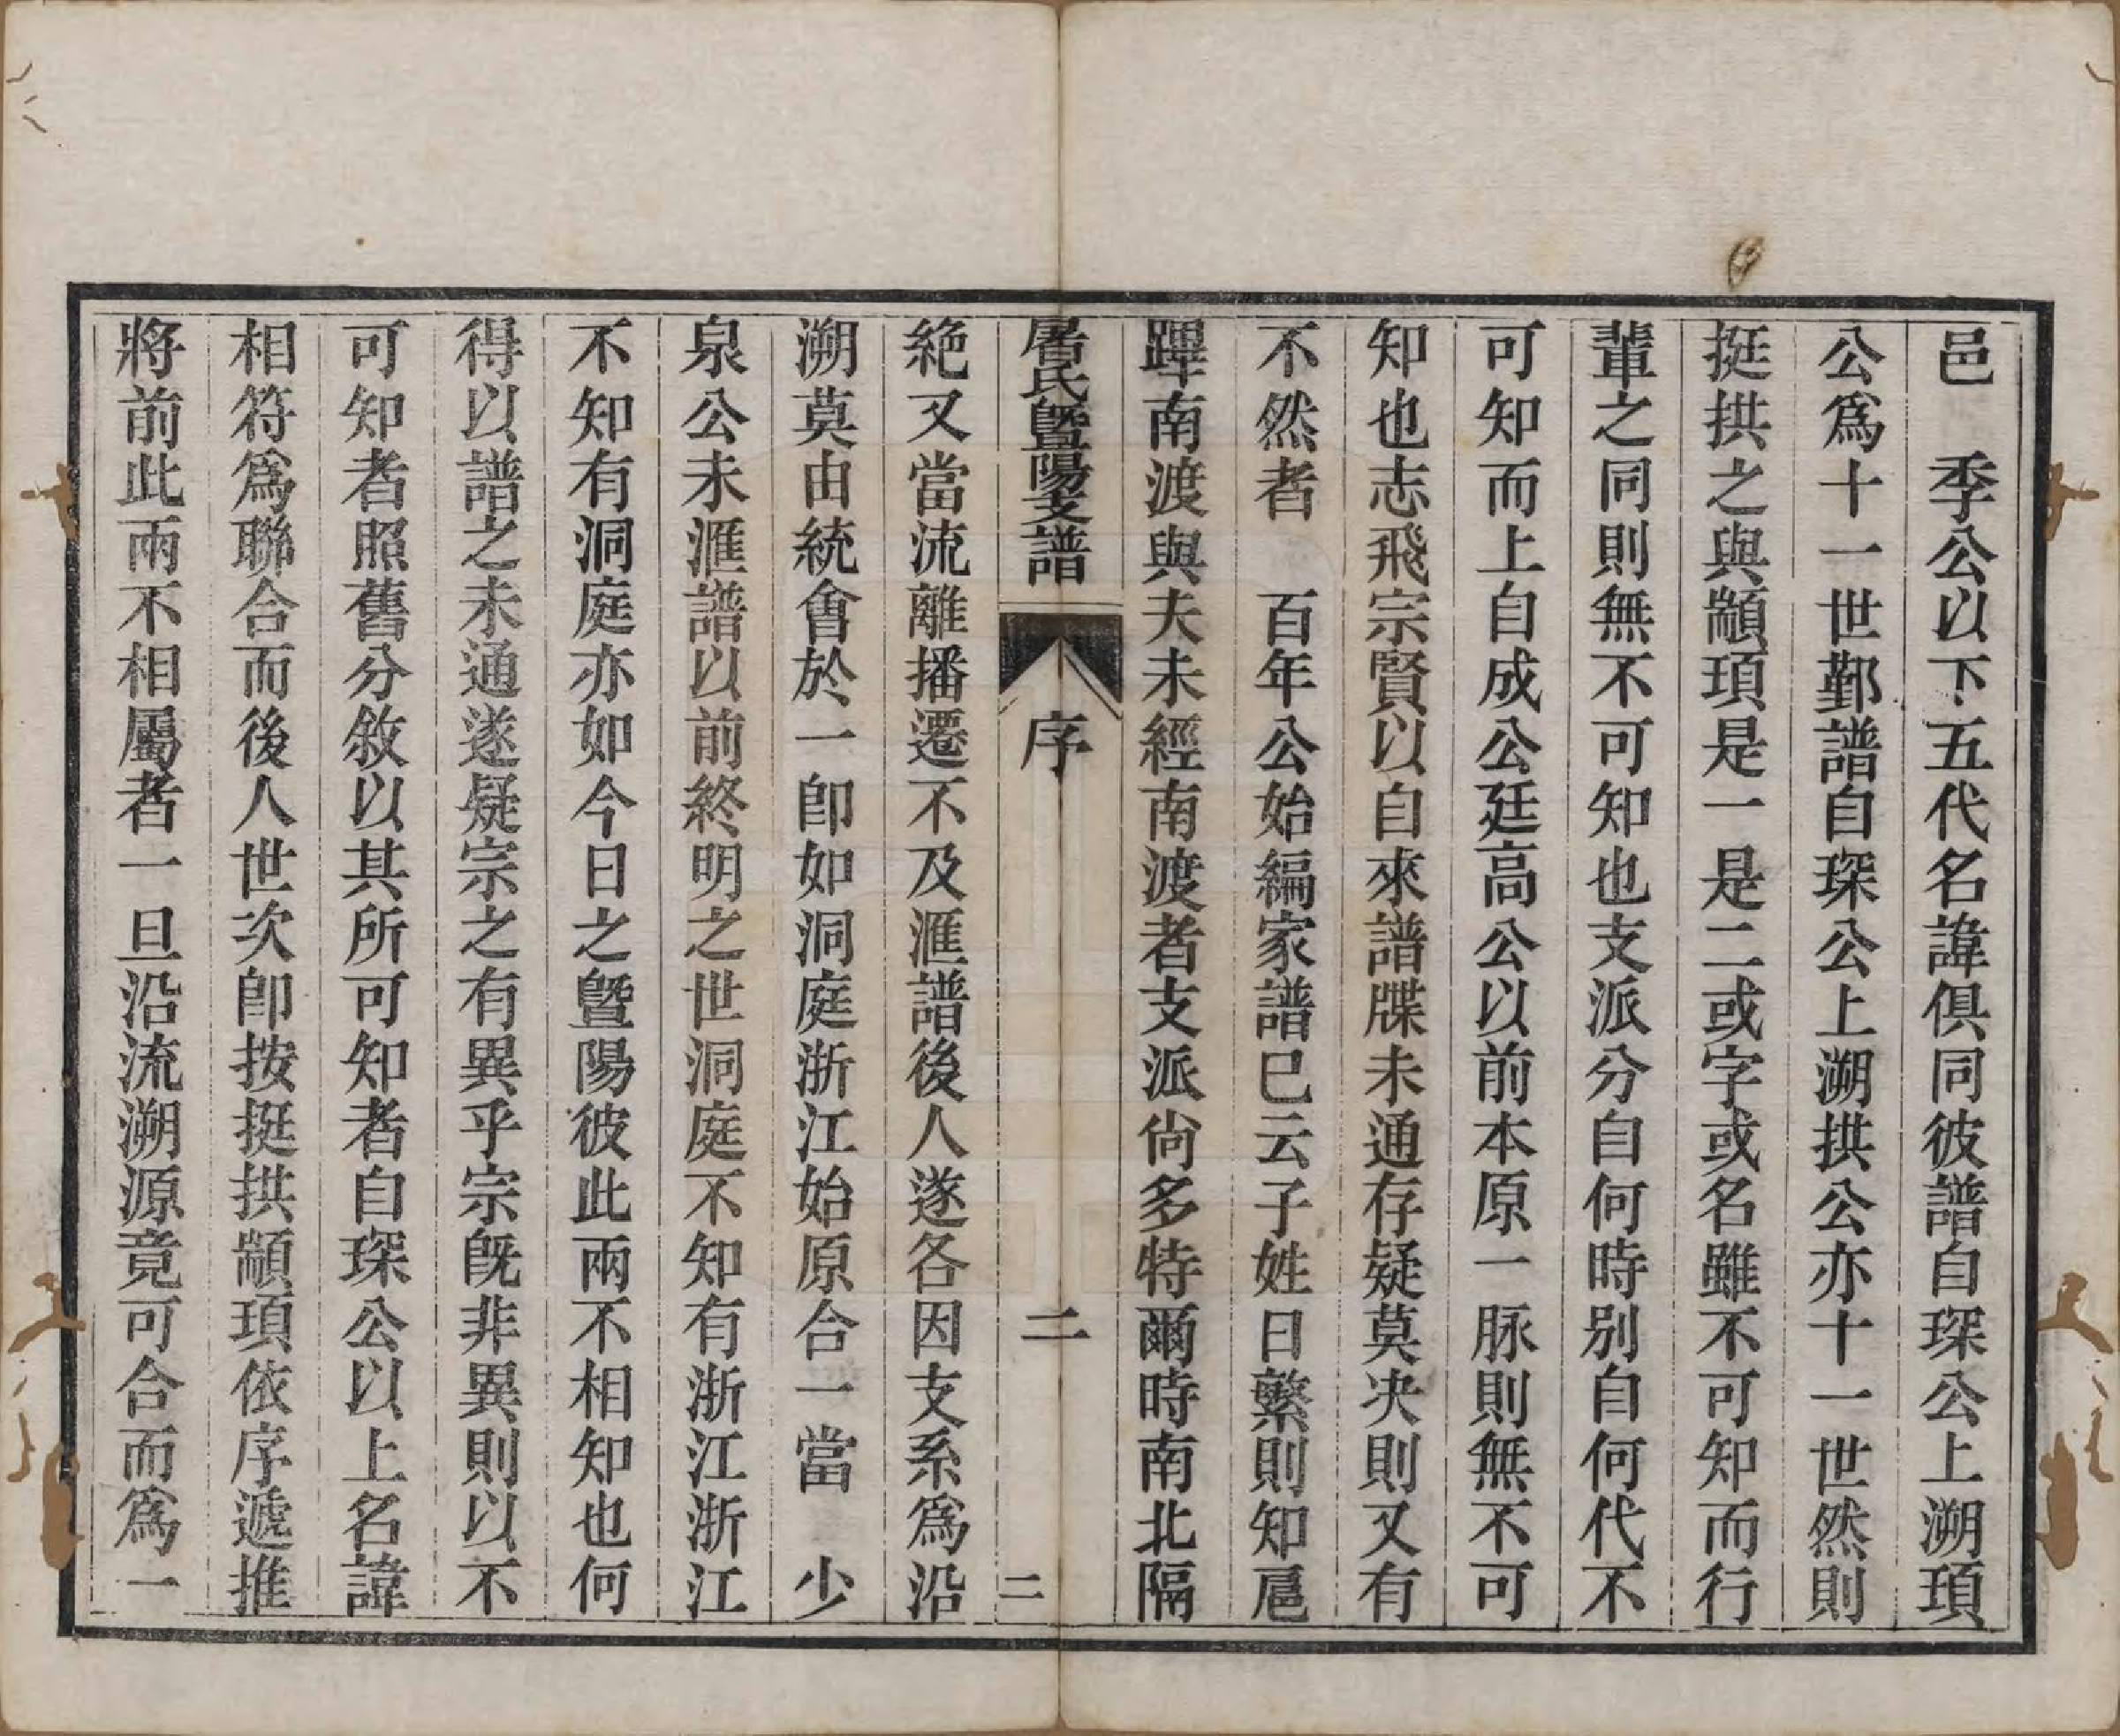 邑　季公以下五代名諱俱同彼譜自琛公上溯頊
公爲十一世鄞譜自琛公上溯拱公亦十一世然則
挺拱之與顓頊是一是二或字或名雖不可知而行
輩之同則無不可知也支派分自何時别自何代不
可知而上自成公廷高公以前本原一脉則無不可
知也志飛宗賢以自來譜牒未通存疑莫决則又有
不然者　百年公始編家譜巳云子姓日蘩則知扈
蹕南渡與夫未經南渡者支派尙多特爾時南北隔
屠氏曁陽支譜　序　二　二
絶又當流離播遷不及滙譜後人遂各因支系爲沿
溯莫由統會於一卽如洞庭浙江始原合一當　少
泉公未滙譜以前終明之世洞庭不知有浙江浙江
不知有洞庭亦如今日之曁陽彼此兩不相知也何
得以譜之未通遂疑宗之有異乎宗旣非異則以不
可知者照舊分敘以其所可知者自琛公以上名諱
相符爲聯合而後人世次卽按挺拱顓頊依序遞推
將前此兩不相屬者一旦沿流溯源竟可合而爲一